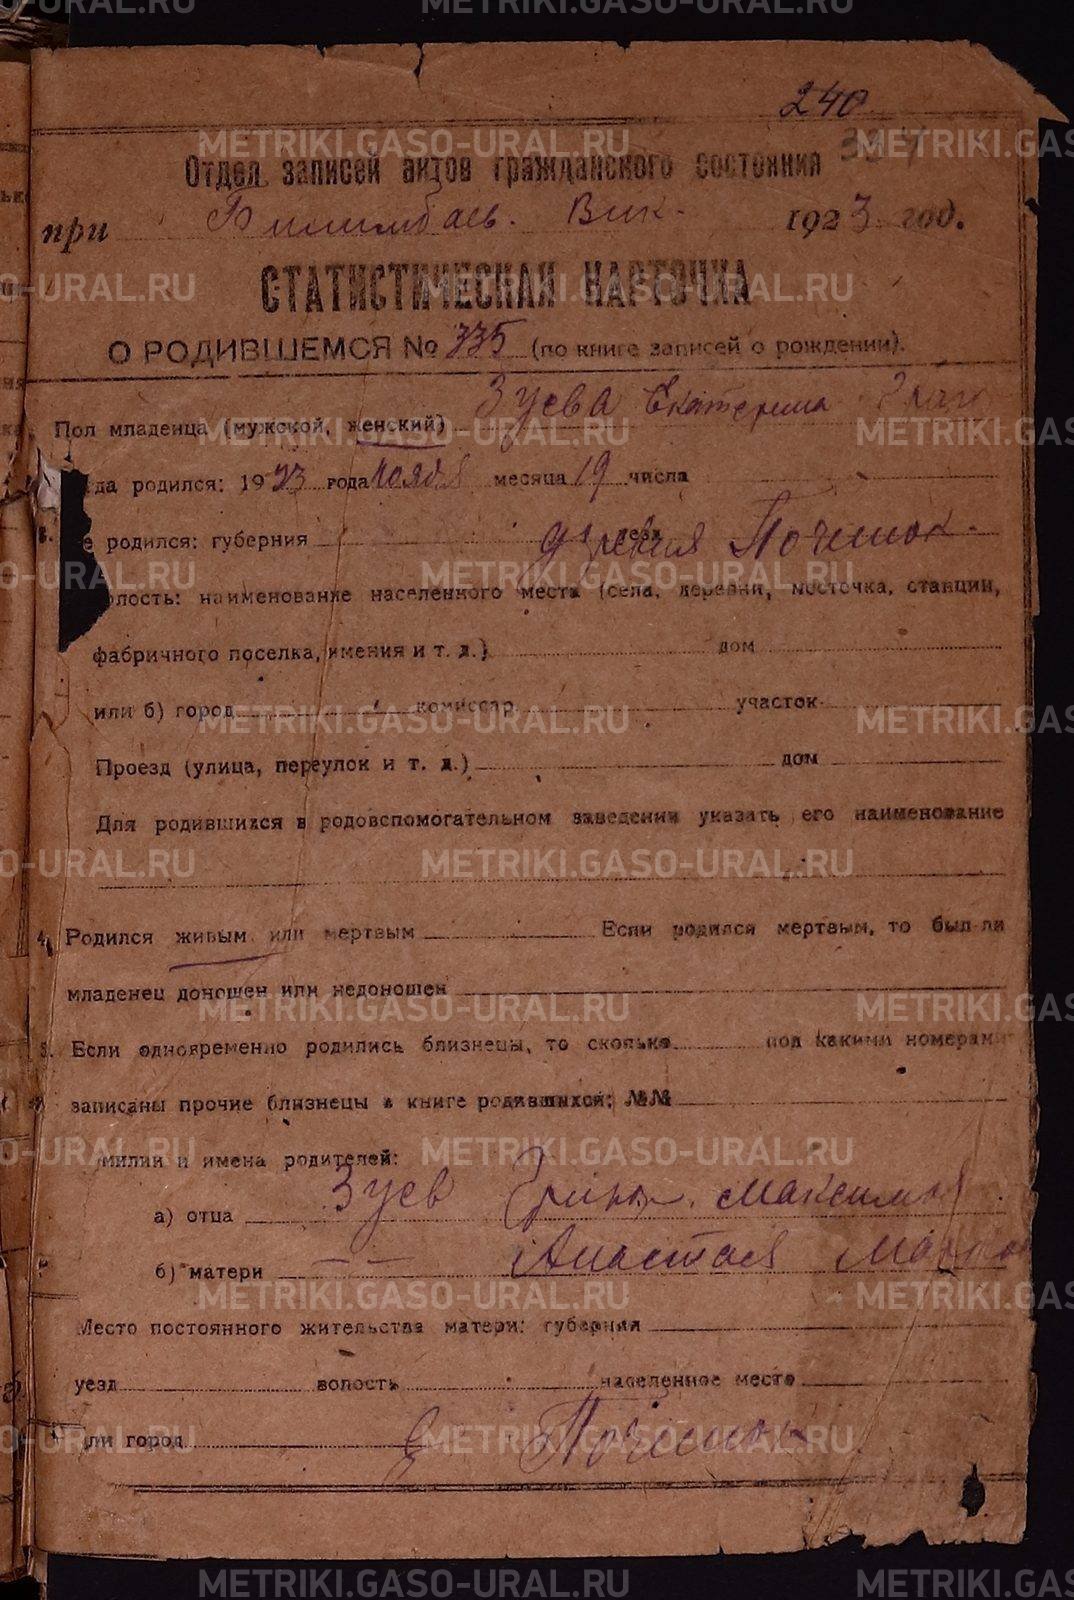 240
Отдел записей актов гражданского состояния
при Билимбаев. Вик. 1923 год.
СТАТИСТИЧЕСКАЯ КАРТОЧКА
О РОДИВШЕМСЯ № 335 (по книге записей о рождении).
Зуева Екатерина
Пол младенца (мужской, женский)
да родился: 1923 года ноября месяца 19 числа
е родился: губерния деревня Починок.
олость: наименование населенного места (села, деревни, месточка, станции,
фабричного поселка, имения и т. д.) дом
или б) город комиссар. участок
Проезд (улица, переулок и т. д.) дом
Для родившихся в родовспомогательном заведении указать его наименование
4. Родился живым или мертвым Если родился мертвым, то был-ли
младенец доношен или недоношен
5. Если одновременно родились близнецы, то сколько под какими номерами
записаны прочие близнецы в книге родившихся: №№
милии и имена родителей:
а) отца Зуев Максимов
б) матери — — Анастасия
Место постоянного жительства матери: губерния
уезд волость населенное место
или город д Починок
METRIKI.GASO-URAL.RU